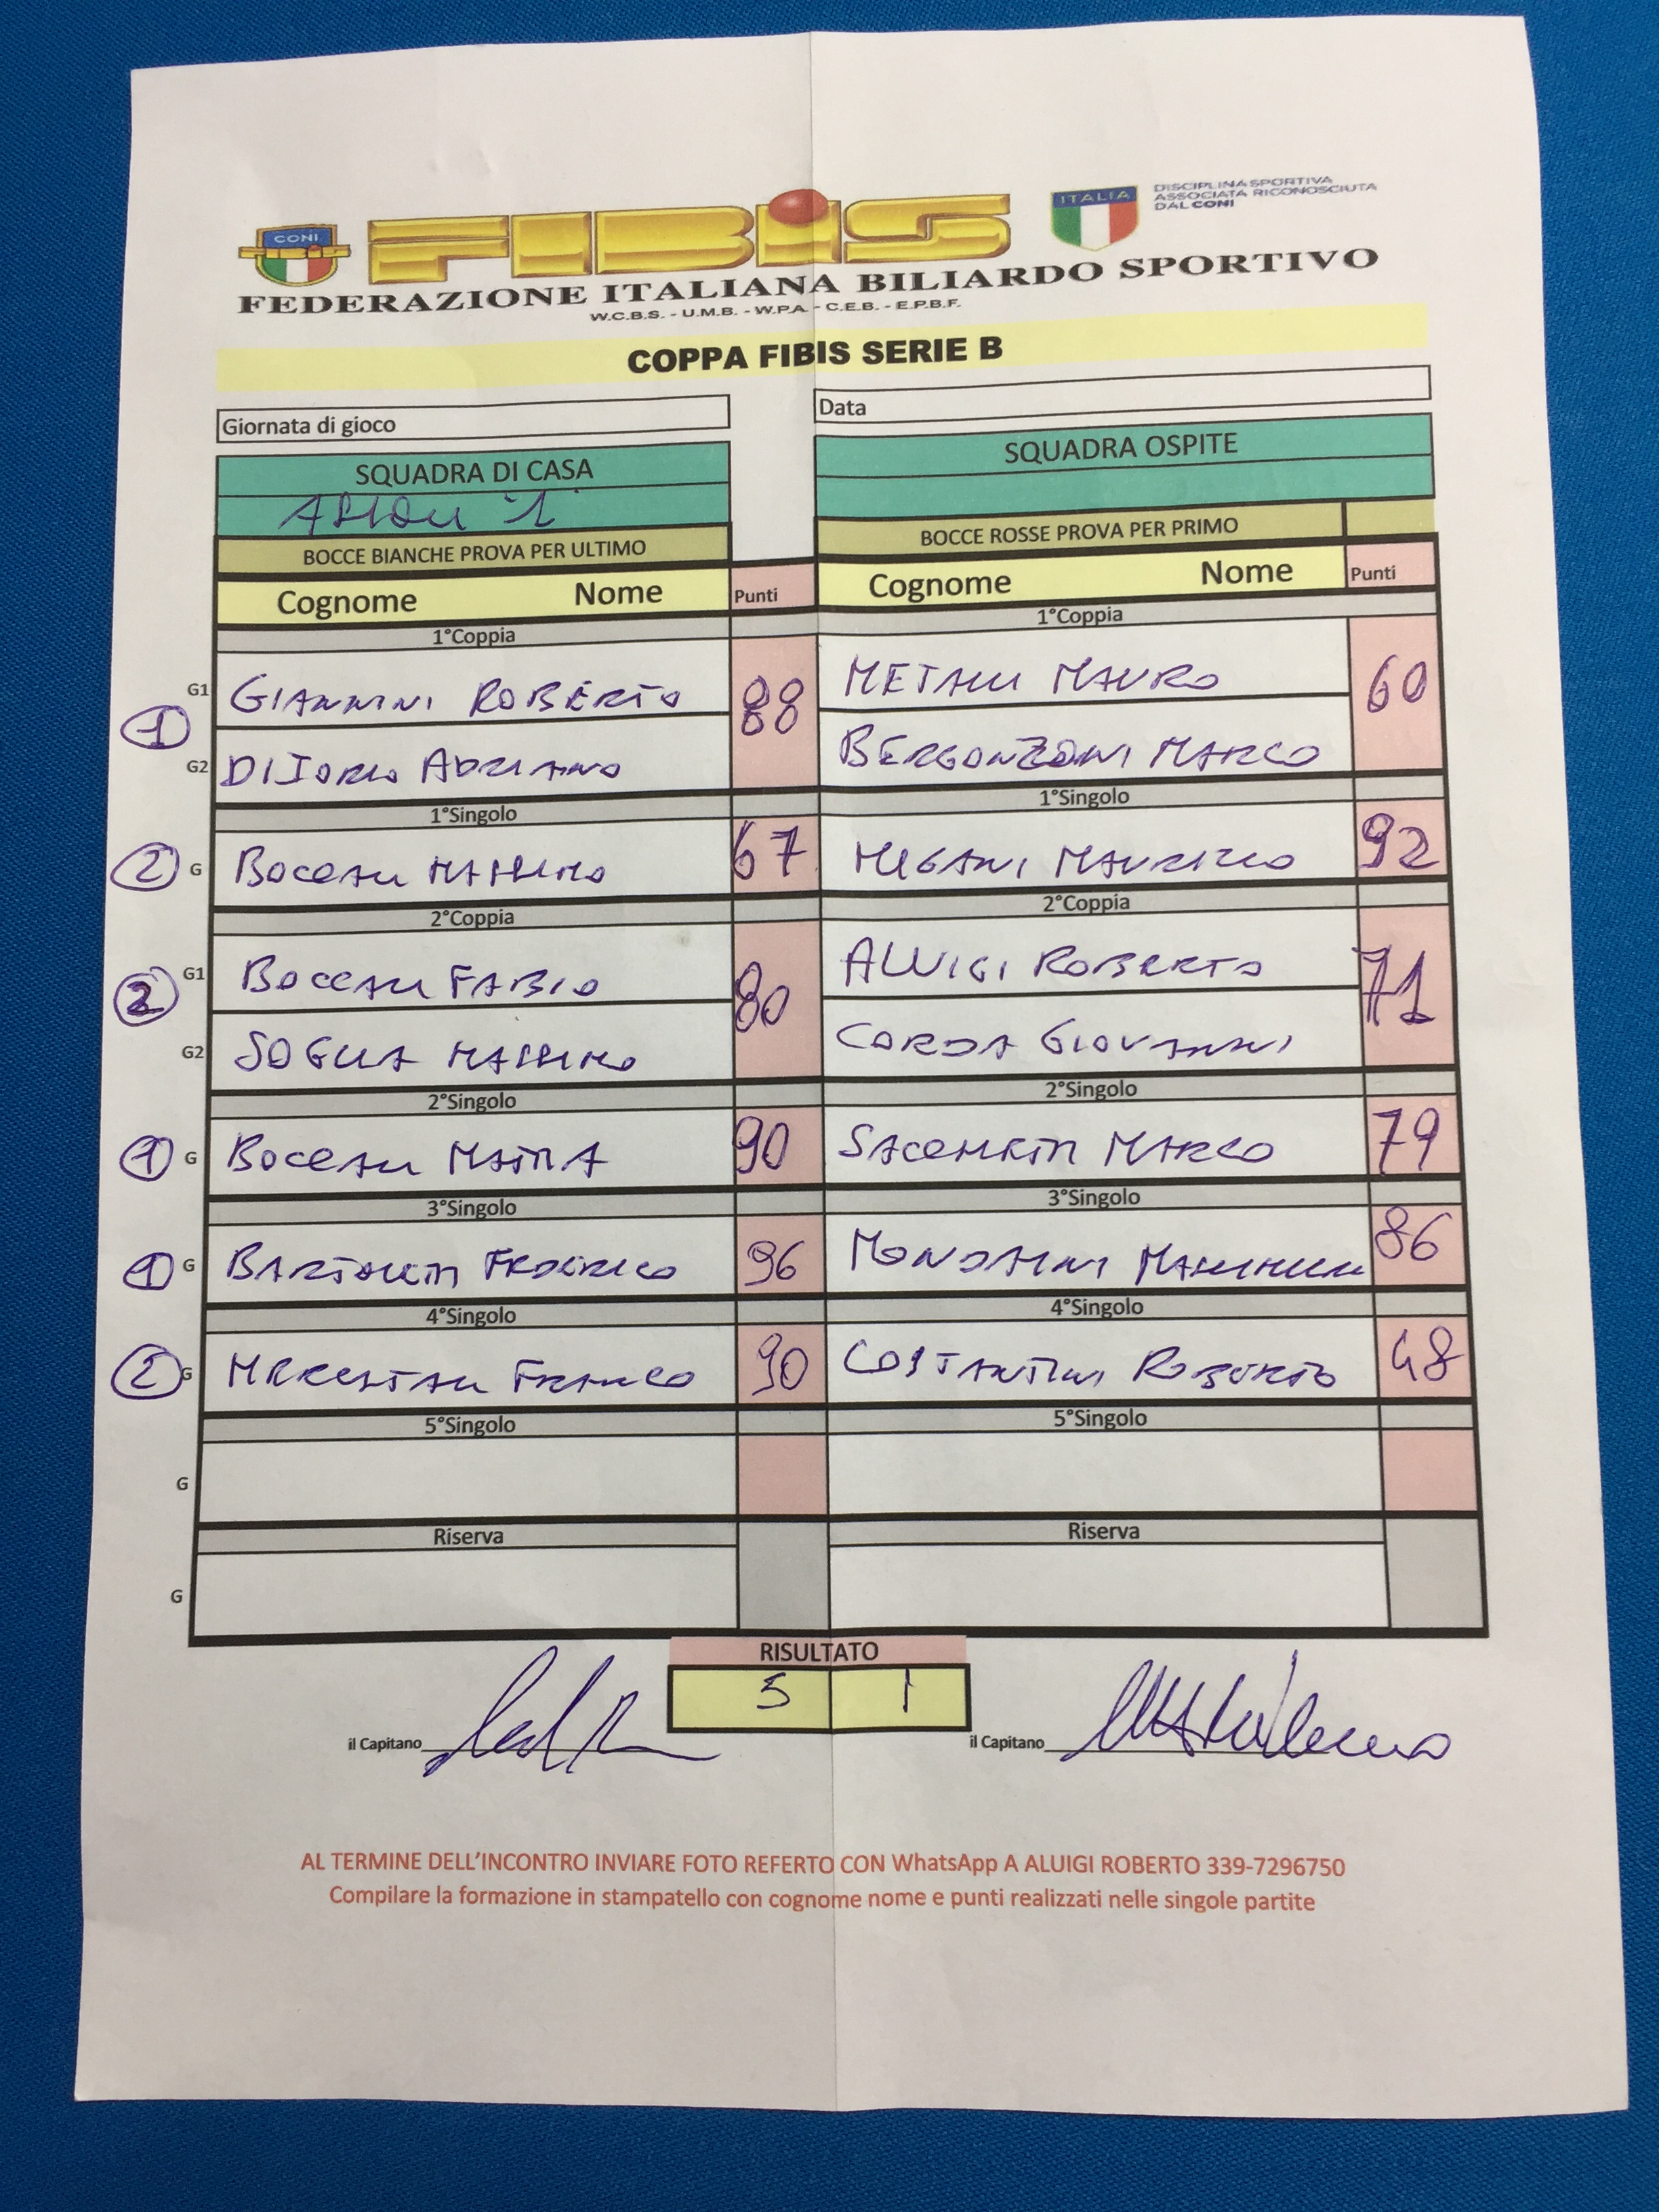 CONI
FIBIS
ITALIA
DISCIPLINA SPORTIVA
ASSOCIATA RICONOSCIUTA
DAL CONI
FEDERAZIONE ITALIANA BILIARDO SPORTIVO
W.C.B.S. - U.M.B. - W.P.A. - C.E.B. - E.P.B.F.
COPPA FIBIS SERIE B
Giornata di gioco
Data
SQUADRA DI CASA
SQUADRA OSPITE
BOCCE BIANCHE PROVA PER ULTIMO
BOCCE ROSSE PROVA PER PRIMO
Cognome Nome Punti
Cognome Nome Punti
1°Coppia
1°Coppia
1
G1 GIANNINI ROBERTO 88
METALLI MAURO 60
G2 DI IORIO ADRIANO
BERGONZONI MARCO
1°Singolo
1°Singolo
2 G MASSIMO 67
MIGANI MAURIZIO 92
2°Coppia
2°Coppia
2
G1 FABIO 80
ALUIGI ROBERTO 71
G2 SOGLIA MASSIMO
CORDA GIOVANNI
2°Singolo
2°Singolo
1 G 90
MARCO 79
3°Singolo
3°Singolo
1 G FEDERICO 96
MONDAINI 86
4°Singolo
4°Singolo
2 G FRANCO 90
COSTANTINI ROBERTO 48
5°Singolo
5°Singolo
G
Riserva
Riserva
G
RISULTATO
5 1
il Capitano
il Capitano
AL TERMINE DELL'INCONTRO INVIARE FOTO REFERTO CON WhatsApp A ALUIGI ROBERTO 339-7296750
Compilare la formazione in stampatello con cognome nome e punti realizzati nelle singole partite